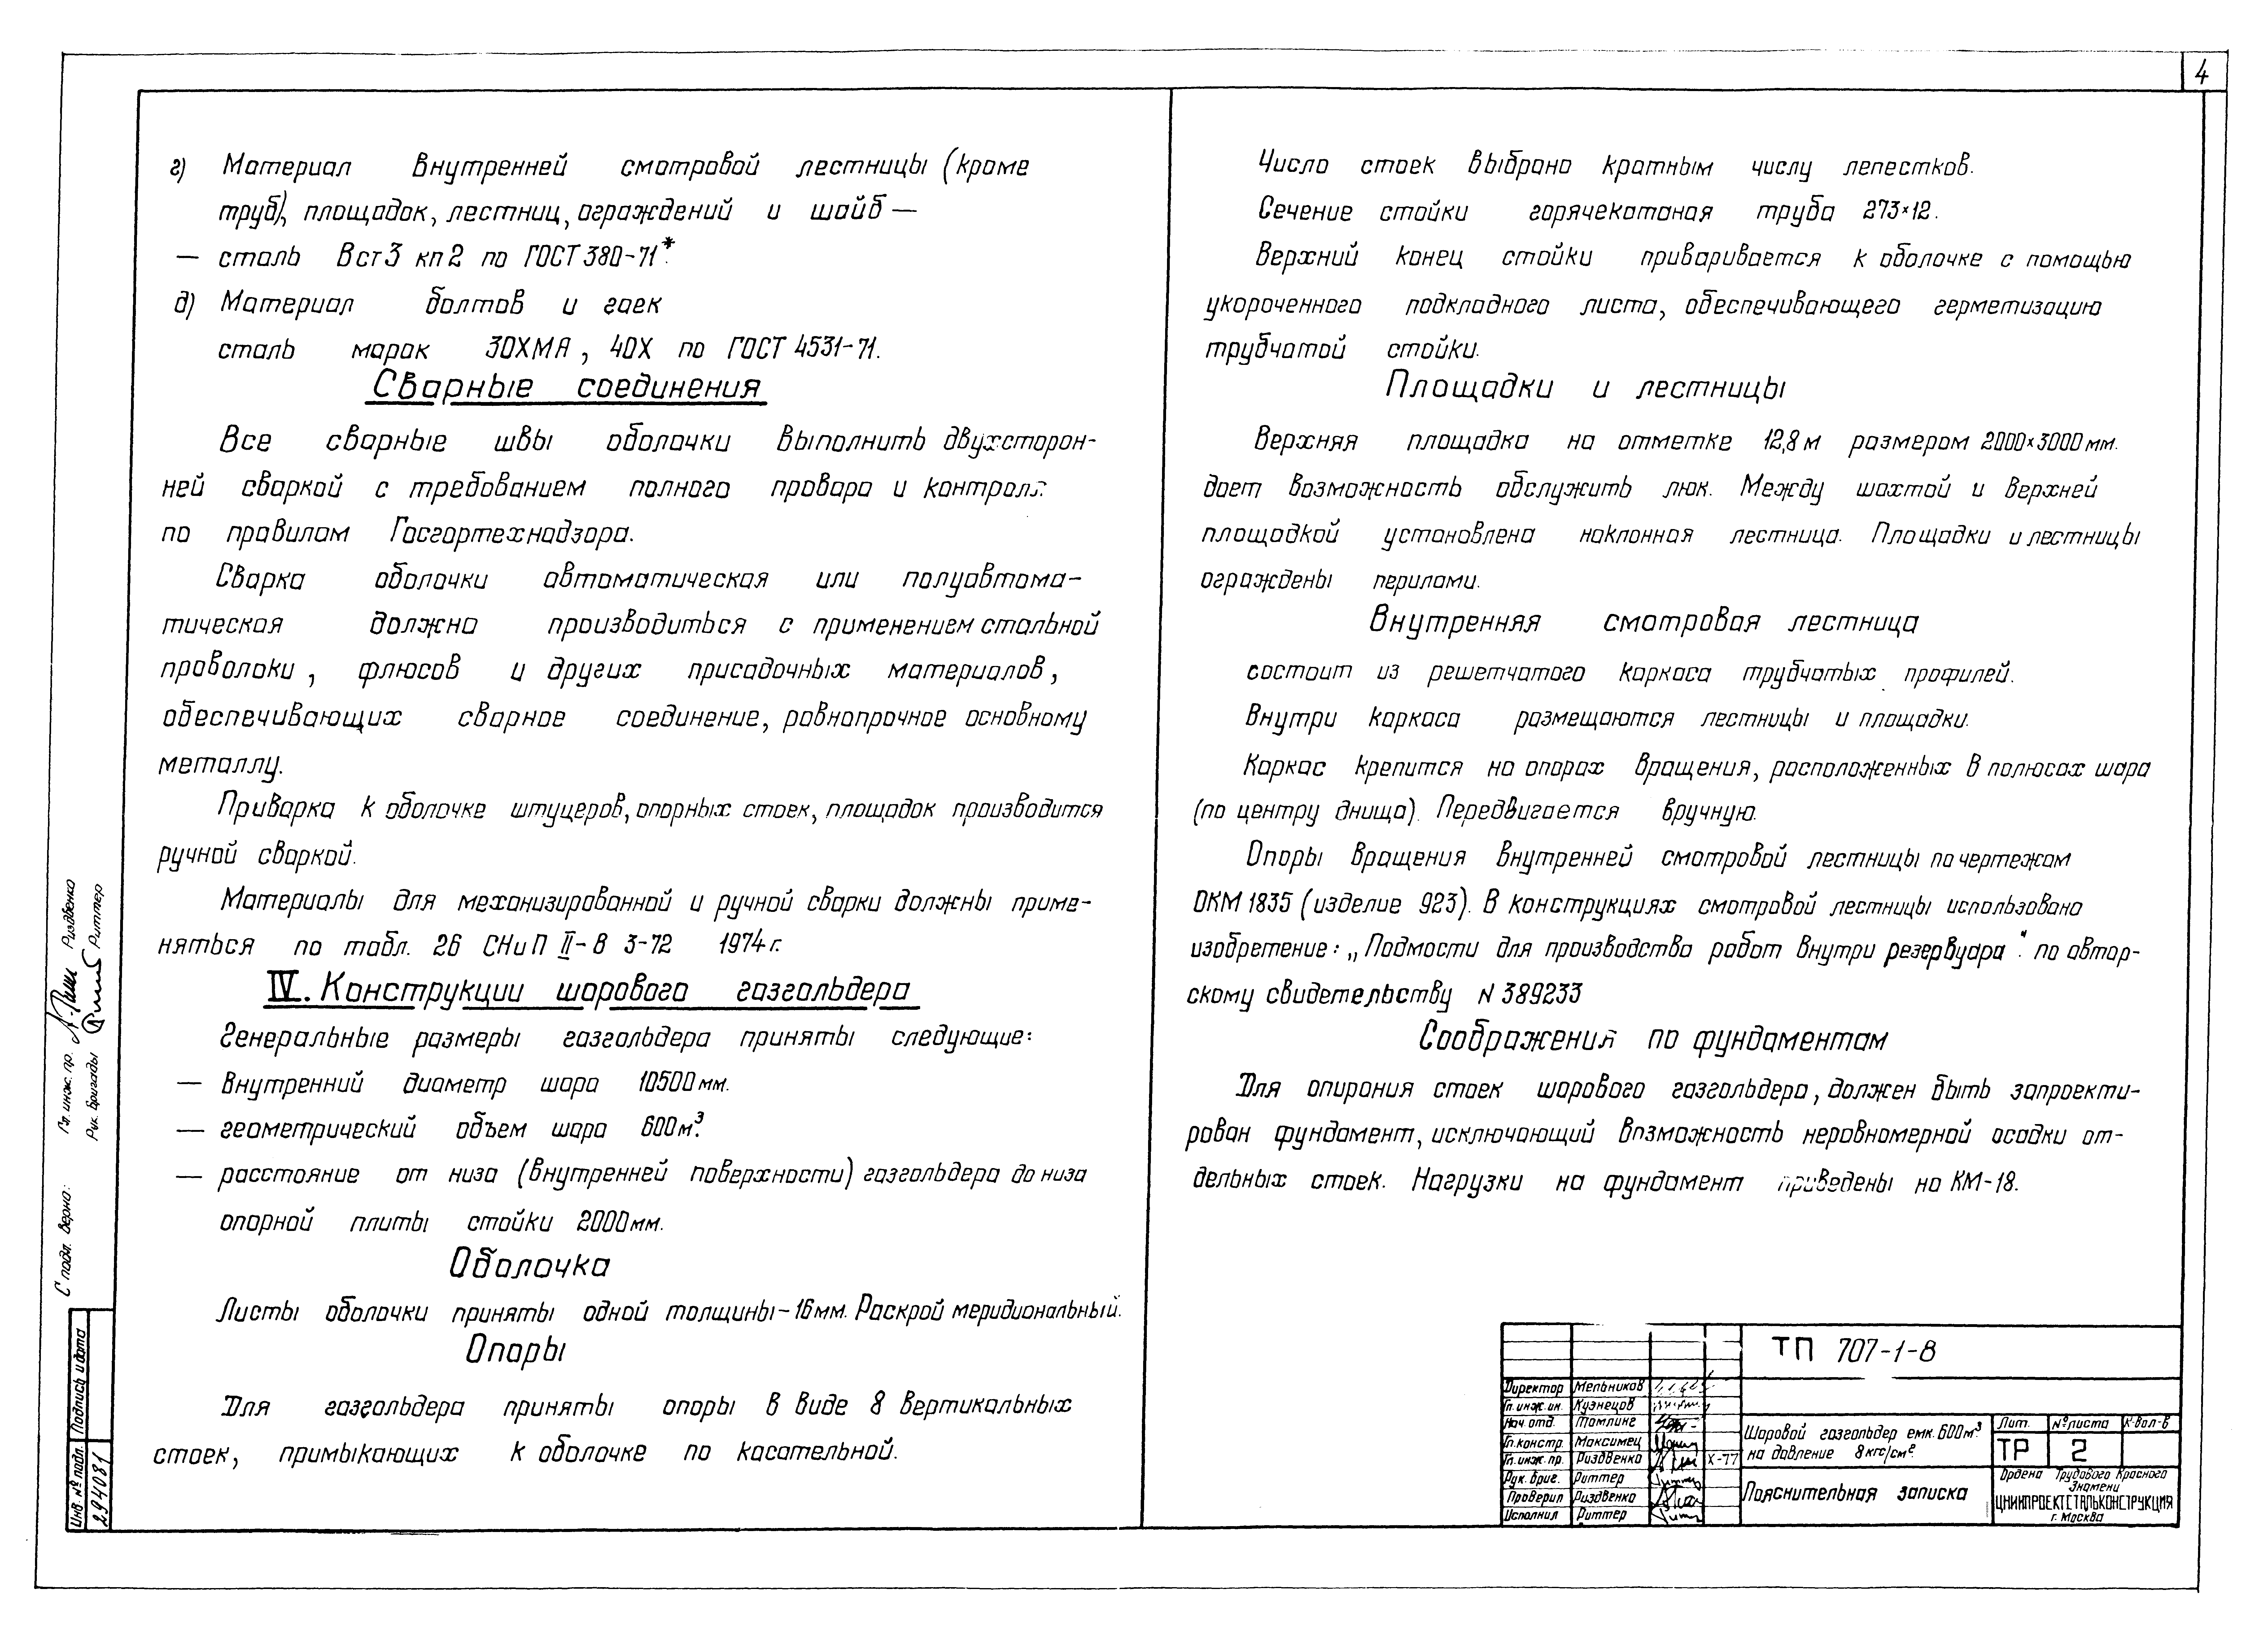 4
г) Материал внутренней смотровой лестницы (кроме
труб), площадок, лестниц, ограждений и шайб —
— сталь Вст3 кп2 по ГОСТ 380-71*.
д) Материал болтов и гаек
сталь марок 30ХМА, 40Х по ГОСТ 4531-71.
Сварные соединения
Все сварные швы оболочки выполнить двухсторон-
ней сваркой с требованием полного провара и контроля
по правилам Госгортехнадзора.
Сварка оболочки автоматическая или полуавтома-
тическая должна производиться с применением стальной
проволоки, флюсов и других присадочных материалов,
обеспечивающих сварное соединение, равнопрочное основному
металлу.
Приварка к оболочке штуцеров, опорных стоек, площадок производится
ручной сваркой.
Материалы для механизированной и ручной сварки должны приме-
няться по табл. 26 СНиП II-В 3-72 1974г.
IV. Конструкции шарового газгольдера
Генеральные размеры газгольдера приняты следующие:
— внутренний диаметр шара 10500мм.
— геометрический объем шара 600м³.
— расстояние от низа (внутренней поверхности) газгольдера до низа
опорной плиты стойки 2000мм.
Оболочка
Листы оболочки приняты одной толщины-16мм. Раскрой меридиональный.
Опоры
Для газгольдера приняты опоры в виде 8 вертикальных
стоек, примыкающих к оболочке по касательной.
Число стоек выбрано кратным числу лепестков.
Сечение стойки горячекатаная труба 273×12.
Верхний конец стойки приваривается к оболочке с помощью
укороченного подкладного листа, обеспечивающего герметизацию
трубчатой стойки.
Площадки и лестницы
Верхняя площадка на отметке 12,8м размером 2000×3000мм.
дает возможность обслужить люк. Между шахтой и верхней
площадкой установлена наклонная лестница. Площадки и лестницы
ограждены перилами.
Внутренняя смотровая лестница
состоит из решетчатого каркаса трубчатых профилей.
Внутри каркаса размещаются лестницы и площадки.
Каркас крепится на опорах вращения, расположенных в полюсах шара
(по центру днища). Передвигается вручную.
Опоры вращения внутренней смотровой лестницы по чертежам
ОКМ 1835 (изделие 923). В конструкциях смотровой лестницы использовано
изобретение: „Подмости для производства работ внутри резервуара". по автор-
скому свидетельству N 389233
Соображения по фундаментам
Для опирания стоек шарового газгольдера, должен быть запроекти-
рован фундамент, исключающий возможность неравномерной осадки от-
дельных стоек. Нагрузки на фундамент приведены на КМ-18.
С подл. верно:
Гл. инж. пр. Риздвенко
Рук. бригады Риттер
Подпись и дата
Инв. № подл.
294081
ТП 707-1-8
Директор Мельников
Гл. инж. ин. Кузнецов
Нач отд. Томлинг
Гл. констр. Максимец
Гл. инж. пр. Риздвенко X-77
Рук. бриг. Риттер
Проверил Риздвенко
Исполнил Риттер
Шаровой газгольдер емк. 600м³.
на давление 8кгс/см²
Пояснительная записка
Лит. № листа К-вол-в
ТР 2
Ордена Трудового Красного
Знамени
ЦНИИПРОЕКТСТАЛЬКОНСТРУКЦИЯ
г. Москва